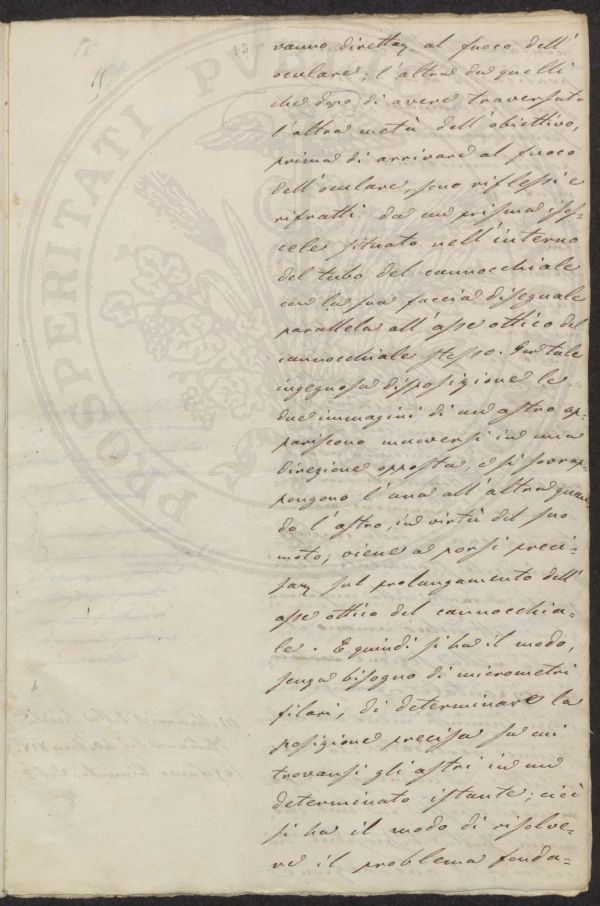 15
vanno direttaz al fuoco dell'
oculare; l'altra da quelli
che dopo di avere traversato
l'altra metà dell'obiettivo,
prima di arrivare al fuoco
dell'oculare, sono riflessi e
rifratti da un prisma isos-
cele situato nell'interno
del tubo del cannocchiale
con la sua faccia diseguale
parallela all'asse ottico del
cannocchiale stesso. Con tale
ingegnosa disposizione le
due immagini di un astro ap-
pariscono muoversi in una
direzione opposta, e si sovrap-
pongono l'una all'altra quan-
do l'astro, in virtù del suo
moto, viene a porsi preci-
saz sul prolungamento dell'
asse ottico del cannocchia-
le. E quindi si ha il modo,
senza bisogno di micrometri
filari, di determinare la
posizione precisa in cui
trovansi gli astri in un
determinato istante; cioè
si ha il modo di risolve-
re il problema fonda-
PROSPERITATI PUBLICAE